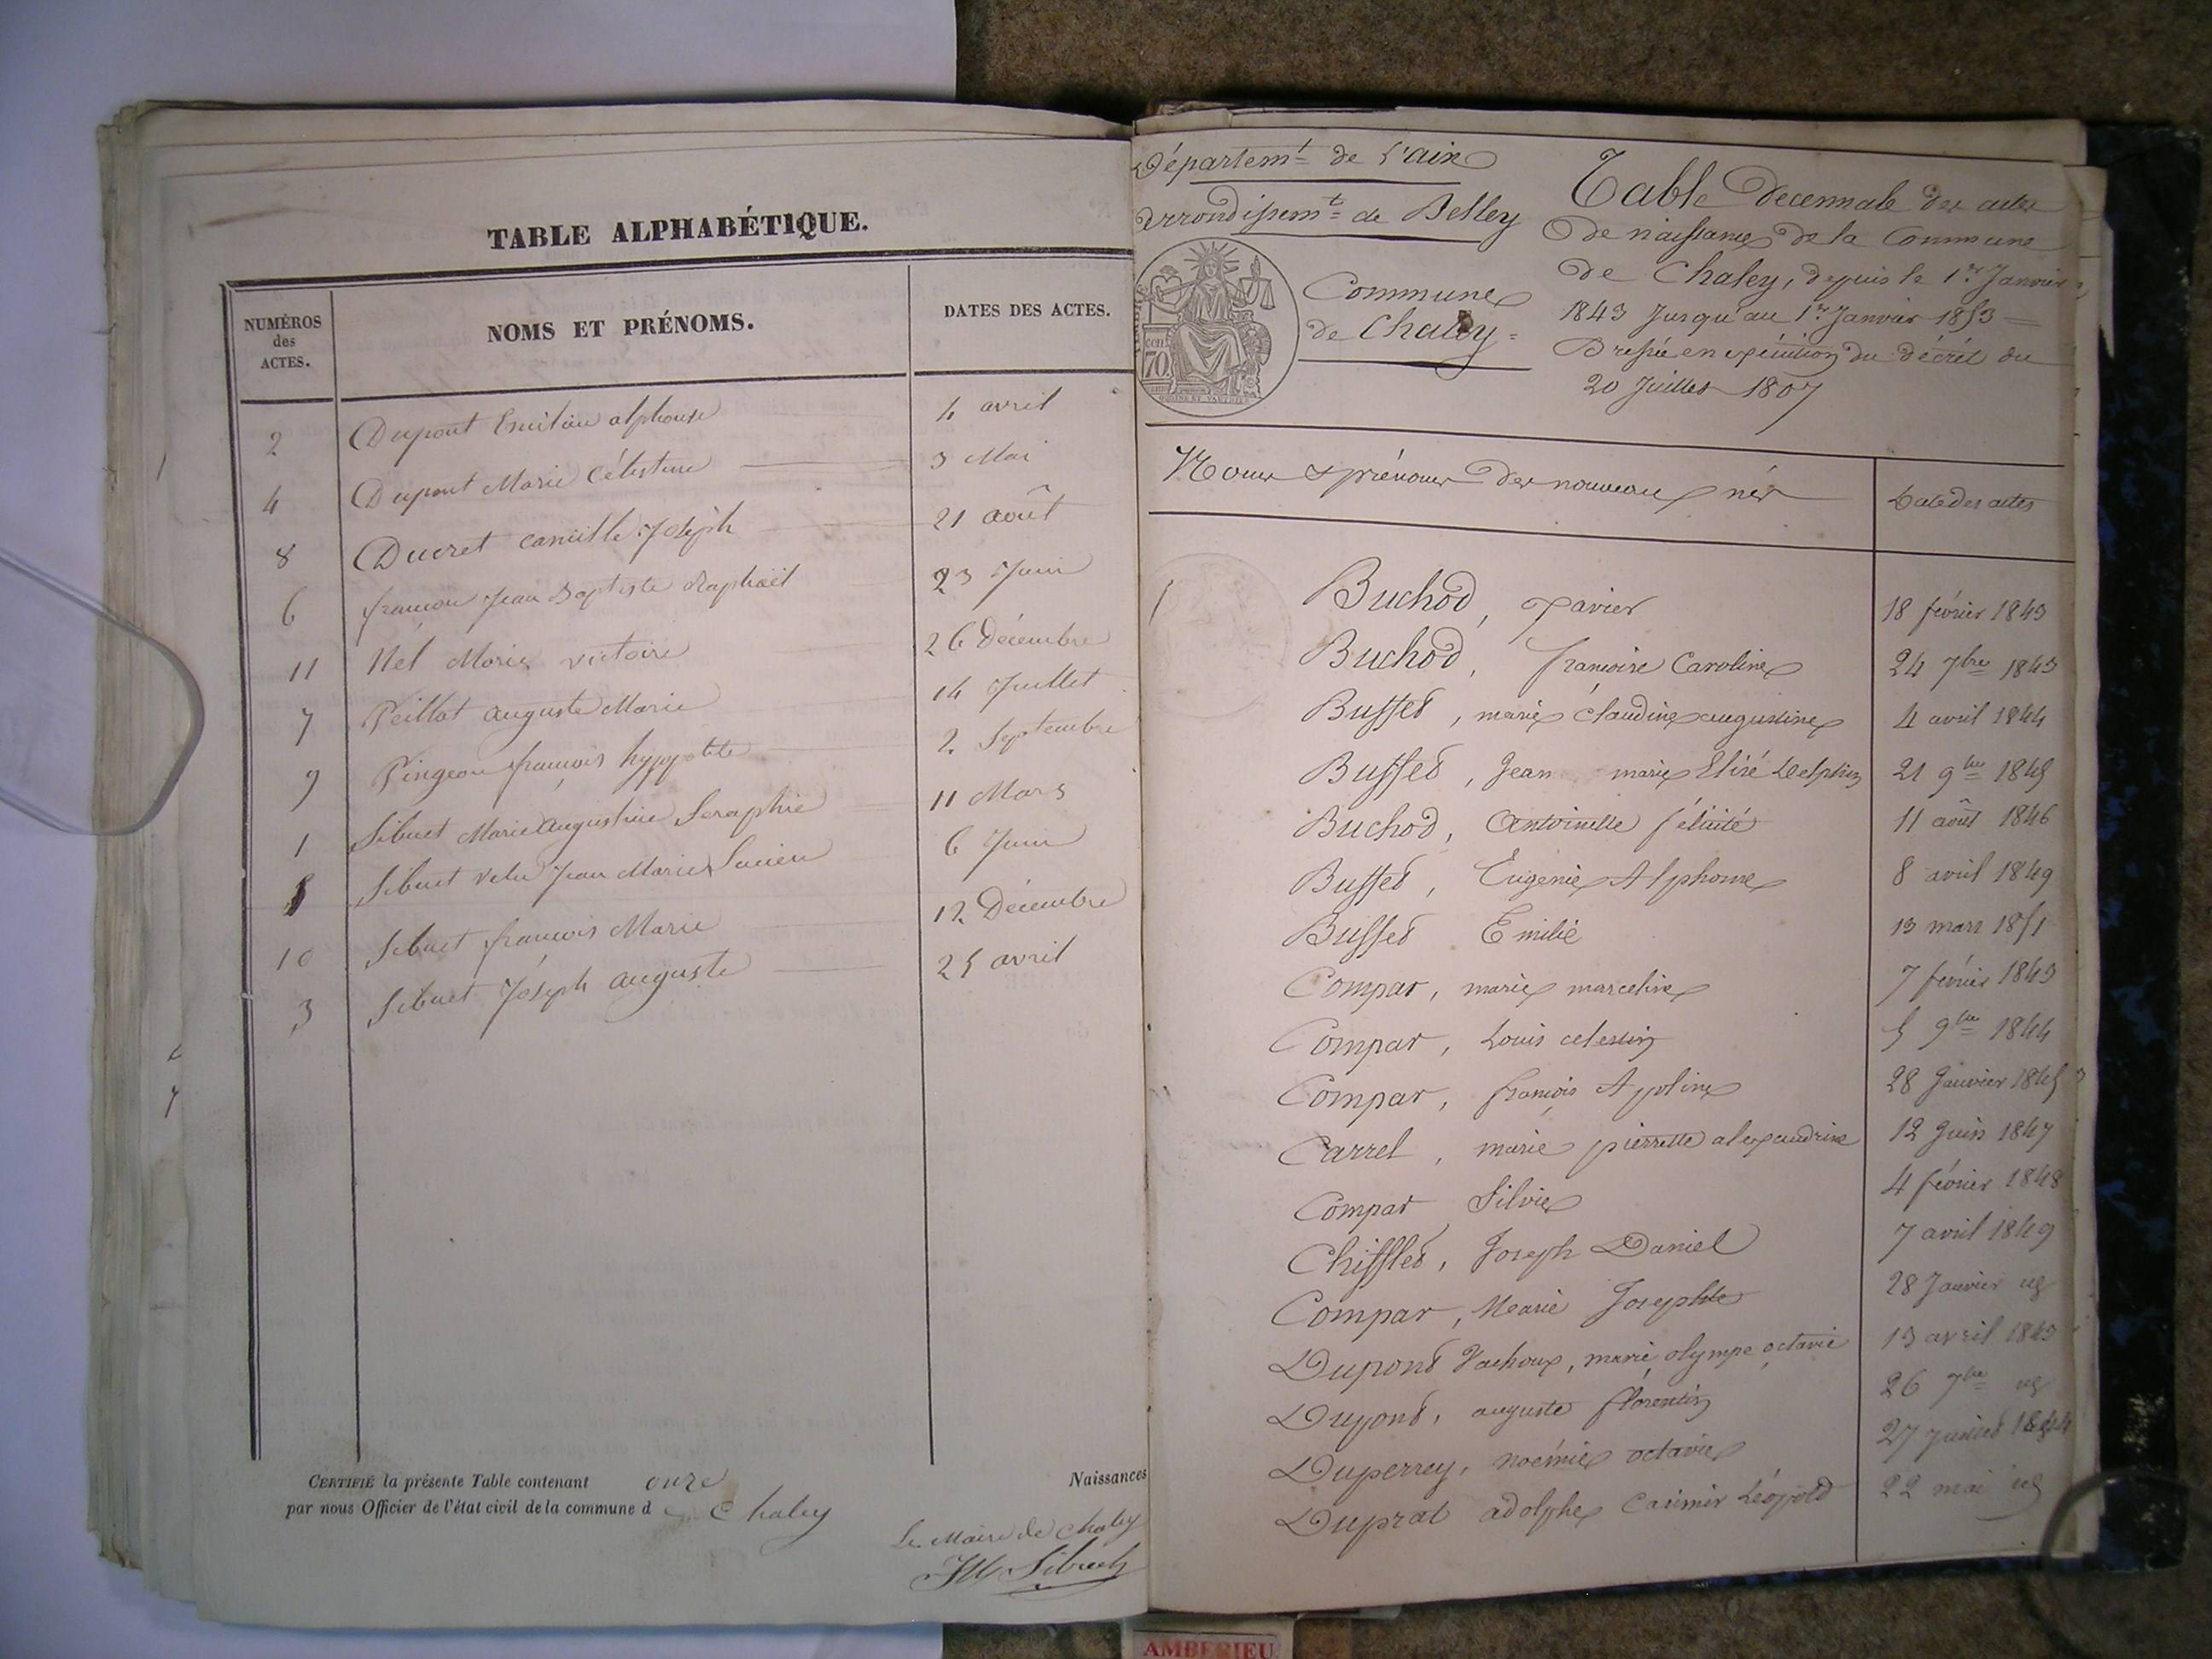 TABLE ALPHABÉTIQUE.
NUMÉROS des ACTES. NOMS ET PRÉNOMS. DATES DES ACTES.
2 Dupont Emilien alphonse 4 avril
4 Dupont Marie Célestine 3 Mai
8 Ducret camille Joseph 21 août
6 françon Jean Baptiste Raphaël 23 Juin
11 Nél Marie victoire 26 Décembre
7 Peillot auguste Marie 14 Juillet
9 Pingeon françois hyppolite 2 Septembre
1 Sibuet Marie Augustine Seraphie 11 Mars
5 Sibuet velu Jean Marie Lucien 6 Juin
10 Sibuet françois Marie 12 Décembre
3 Sibuet Joseph auguste 25 avril
CERTIFIÉ la présente Table contenant onze Naissances
par nous Officier de l'état civil de la commune d e Chaley
Le Maire de Chaley
Sibuet
Départemt de l'ain
arrondissemt de Belley
Commune
de Chaley =
Table Decennale des actes
de naissance de la Commune
de Chaley, depuis le 1er Janvier
1843 Jusqu'au 1er Janvier 1853
Dressée en exécution du décrét du
20 Juillet 1807
Noms & prénoms des nouveau nés Date des actes
Buchod, xavier 18 février 1843
Buchod, françoise Caroline 24 7bre 1843
Buffet, marie claudine augustine 4 avril 1844
Buffet, Jean marie Elisé Delphin 21 9bre 1845
Buchod, Antoinette félicité 11 août 1846
Buffet, Eugenie Alphonse 8 avril 1849
Buffet Emilie 13 mars 1851
Compar, marie marceline 7 février 1843
Compar, Louis celestin 5 9bre 1844
Compar, françois Apoline 28 Janvier 1845
Carrel, marie pierrette alexandrine 12 Juin 1847
Compar Silvie 4 février 1848
Chifflet, Joseph Daniel 7 avril 1849
Compar, Marie Josephte 28 Janvier
Dupont Vachoux, marie olympe octavie 13 avril 1843
Dupont, auguste florentin 26 7bre
Duperrey, noémie octavie 27 Juillet 1844
Duprat adolphe Casimir Léopold 22 mai
AMBERIEU